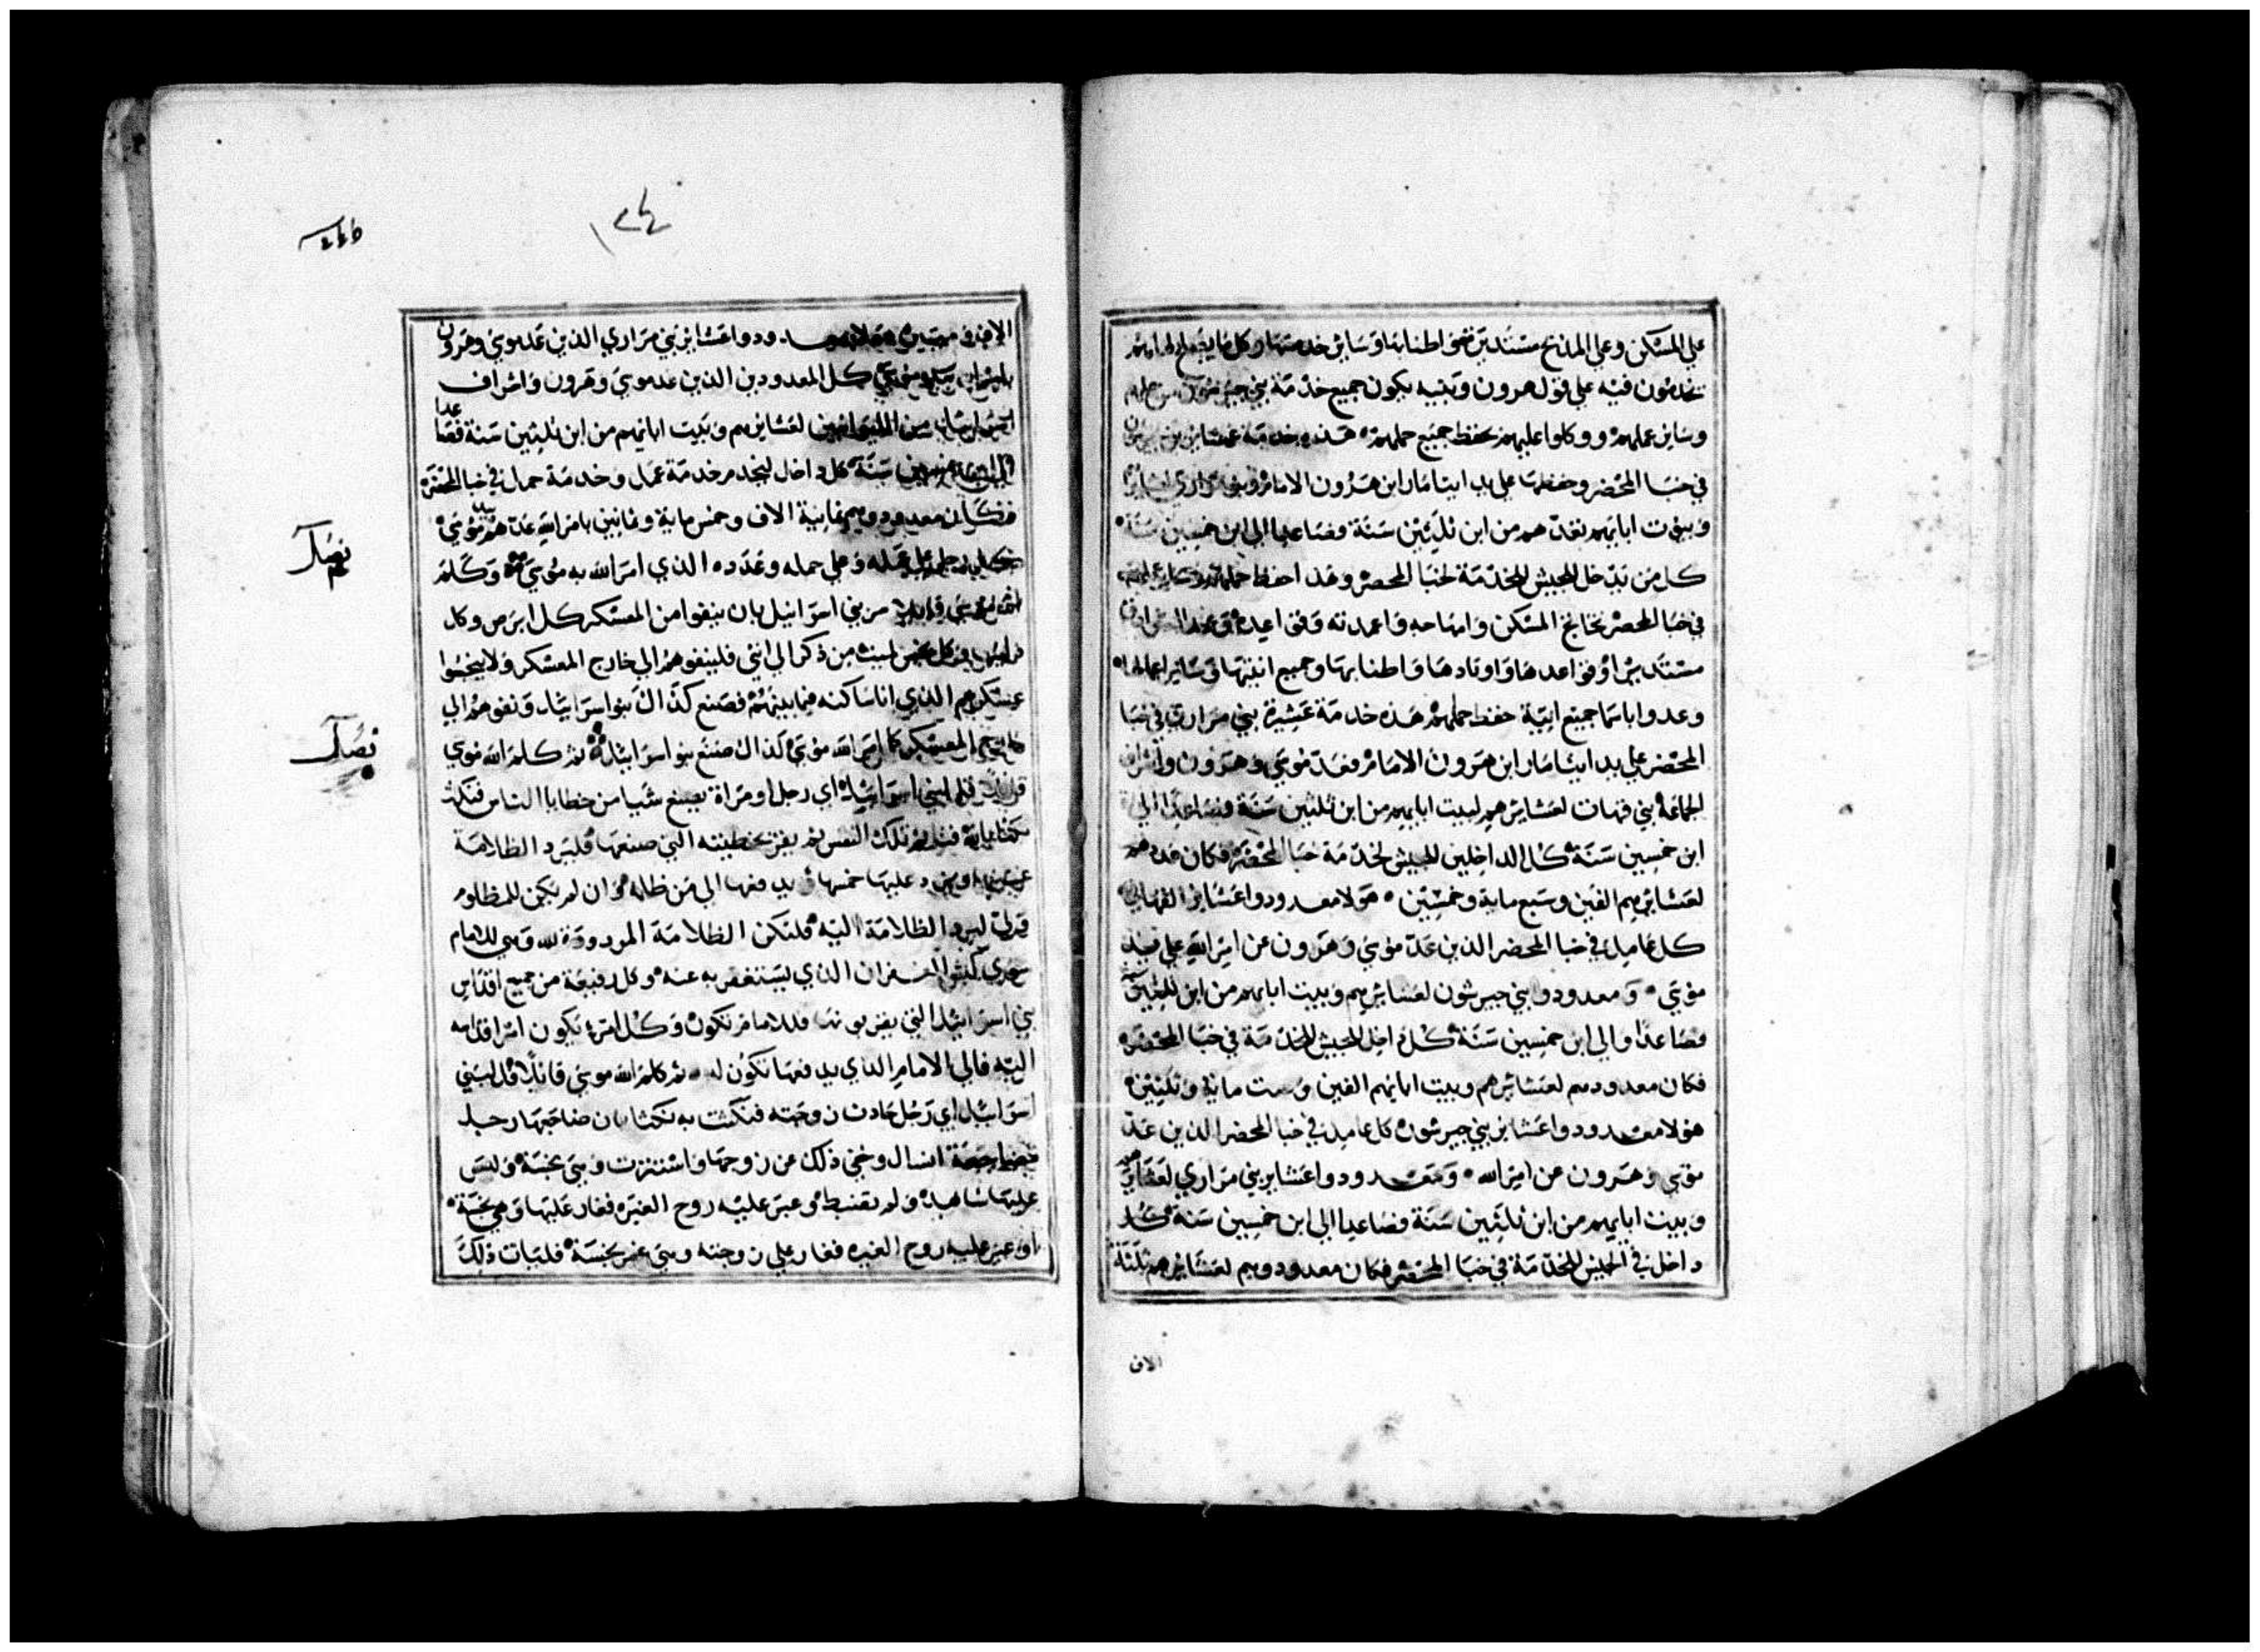 علي المسكن وعلي المذبح مستديرة نحو اطنابها وسائر خدمتها وكل ما يصنع لها
يخدمون فيه علي قول هرون وبنيه يكون جميع خدمة بني جيرشون من حملهم
وسائر عملهم ووكلوا عليهم بحفظ جميع حملهم هذه خدمة عشائر بني جيرشون
في خبا المحضر وحفظها علي يد ايتامار ابن هرون الامام وبنو مراري لعشائرهم
وبيوت ابايهم تعدهم من ابن ثلثين سنة فصاعدا الي ابن خمسين سنة
كل من يدخل للجيش للخدمة لخبا المحضر وهذا احفظ حملهم وكل عملهم
في خبا المحضر تخاتج المسكن وامهاجه واعمدته وقواعيده وعمد السرادق
مستديرا وقواعدها واوتادها واطنابها وجميع انيتها وسائر اعمالها
وعدوا باسما جميع انية حفظ حملهم هذه خدمة عشيرة بني مراري في خبا
المحضر علي يد ايتامار ابن هرون الامام فعد موسي وهرون واشراف
الجماعة بني قهات لعشائرهم لبيت ابايهم من ابن ثلثين سنة فصاعدا الي
ابن خمسين سنة كل الداخلين للجيش لخدمة خبا المحضر فكان عددهم
لعشائرهم الفين وسبع ماية وخمسين هولا معدودوا عشائر القهاتي
كل عامل في خبا المحضر الذين عد موسي وهرون عن امر الله علي يد
موسي ومعدودوا بني جيرشون لعشائرهم وبيت ابايهم من ابن ثلثين سنة
فصاعدا والي ابن خمسين سنة كل داخل للجيش للخدمة في خبا المحضر
فكان معدودهم لعشائرهم وبيت ابايهم الفين وست ماية وثلثين
هولا معدودوا عشائر بني جيرشون كل عامل في خبا المحضر الذين عد
موسي وهرون عن امر الله ومعدودوا عشاير بني مراري لعشايرهم
وبيت ابايهم من ابن ثلثين سنة فصاعدا الي ابن خمسين سنة كل
داخل في الجيش للخدمة في خبا المحضر فكان معدودوهم لعشائرهم ثلثة
الاف
١٢٤
الاف وميتين هولا معدودوا عشائر بني مراري الذين عد موسي وهرون
كل المعدودين الذين عد موسي وهرون واشراف
لعشائرهم وبيت ابايهم من ابن ثلثين سنة فصاعدا
والي ابن خمسين سنة كل داخل ليخدم خدمة عمل وخدمة حمل في خبا المحضر
فكان معدودوهم ثمانية الاف وخمس ماية وثمانين بامر الله عدهم موسي
كل رجل علي عمله وعلي حمله وعدده الذي امر الله به موسي وكلم
الله موسي قايلا مر بني اسرائيل بان ينفوا من المعسكر كل ابرص وكل
ذايب وكل نجس لميت من ذكر الي انثي فلينفوهم الي خارج المعسكر ولا ينجسوا
عسكرهم الذي انا ساكنه فيما بينهم فصنع كذالك بنو اسرائيل ونفوهم الي
خارج المعسكر كما امر الله موسي كذالك صنع بنو اسرائيل ثم كلم الله موسي
قايلا قل لبني اسرائيل اي رجل او مراة يصنع شيا من خطايا الناس فنكث
نكثا بالله فتاثم تلك النفس ثم يقر بخطيته التي صنعها فليرد الظلامة
عليها خمسها ويدفعها الي من ظلمه وان لم يكن للمظلوم
ولي ليرد الظلامة اليه فلتكن الظلامة المردودة لله وهي للامام
سوي كبش الغفران الذي يستغفر به عنه وكل رفيعة من جميع اقداس
بني اسرائيل التي يقربونها فللامام تكون وكل امر تكون اقداسه
اليه فالي الامام الذي يدفعها تكون له ثم كلم الله موسي قائلا قل لبني
اسرائيل اي رجل حادت زوجته فنكثت به نكثا بان ضاجعها رجل
مضاجعة انسال وخفي ذلك عن زوجها واستترت وهي نجسة وليس
عليها شاهد ولم تضبط وعبر عليه روح الغيره فغار عليها وهي نجسة
او عبر عليه روح الغيره فغار علي زوجته وهي غير نجسة فليات ذلك
نصل
نصل